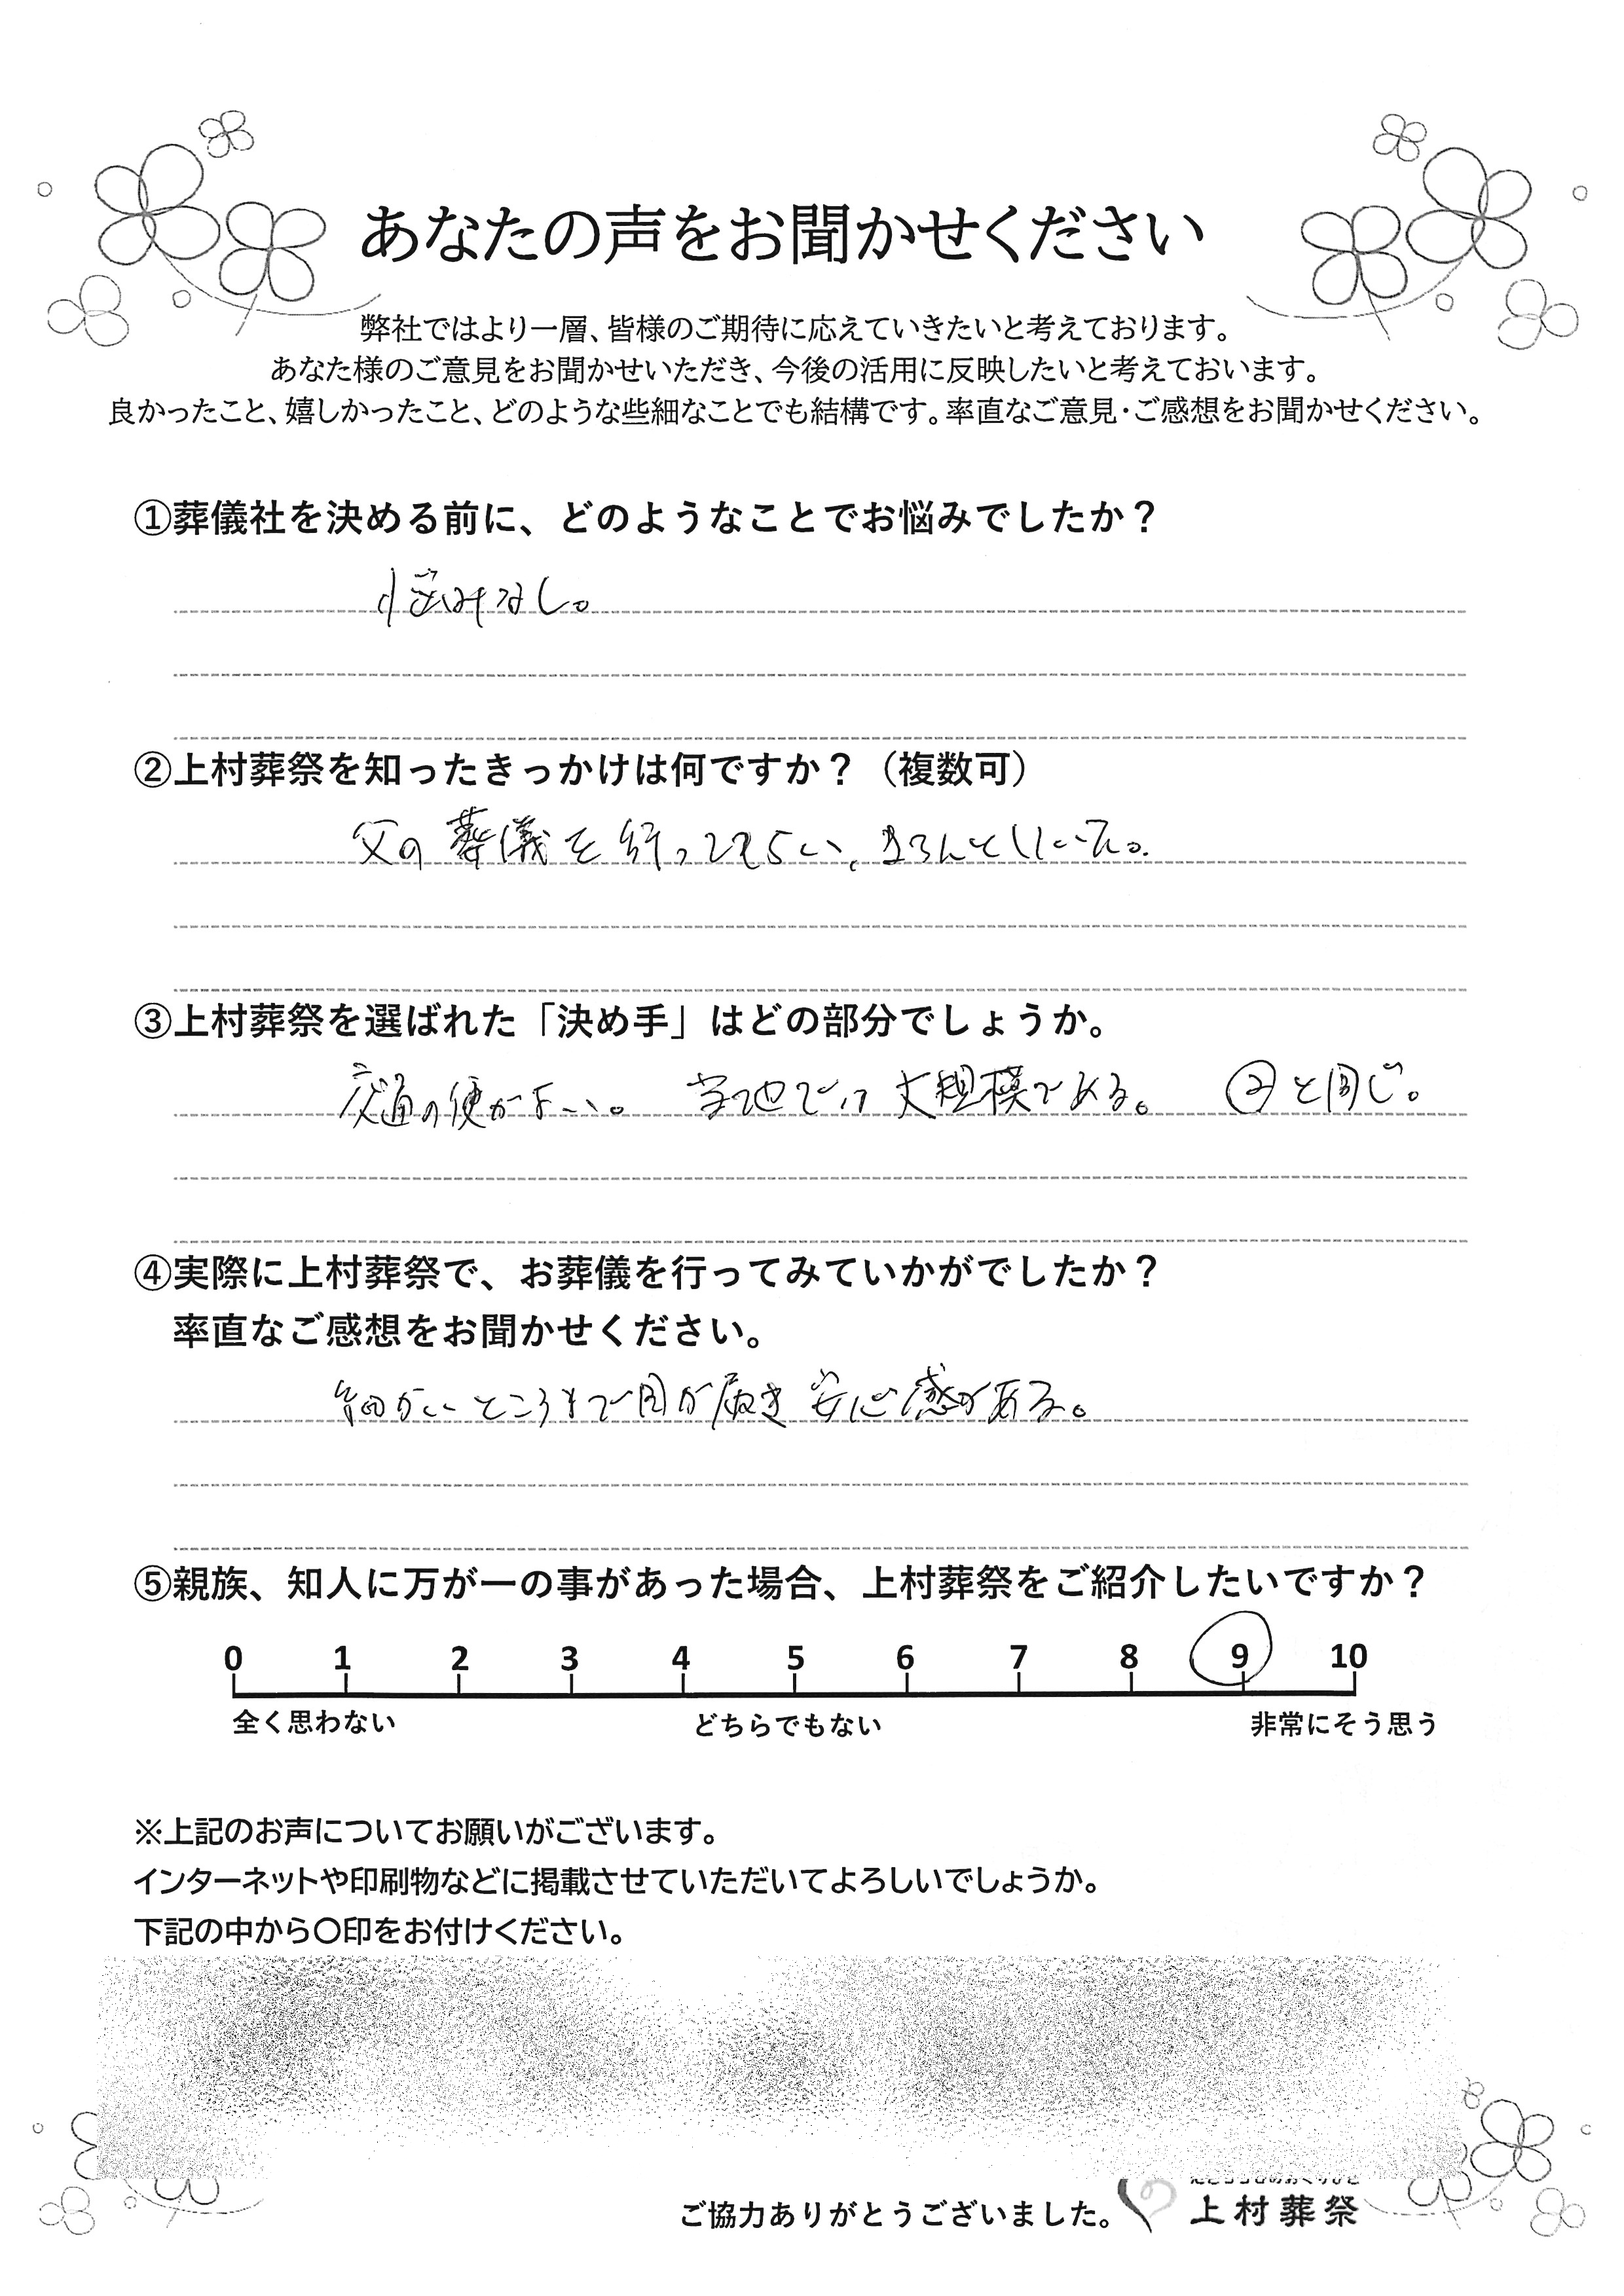 あなたの声をお聞かせください
弊社ではより一層、皆様のご期待に応えていきたいと考えております。
あなた様のご意見をお聞かせいただき、今後の活用に反映したいと考えておいます。
良かったこと、嬉しかったこと、どのような些細なことでも結構です。率直なご意見・ご感想をお聞かせください。
①葬儀社を決める前に、どのようなことでお悩みでしたか？
悩みなし。
②上村葬祭を知ったきっかけは何ですか？（複数可）
父の葬儀を行ってもらい、きちんとしていた。
③上村葬祭を選ばれた「決め手」はどの部分でしょうか。
交通の便がよい。 当地では大規模である。 ②と同じ。
④実際に上村葬祭で、お葬儀を行ってみていかがでしたか？
率直なご感想をお聞かせください。
細かいところまで目が届き安心感がある。
⑤親族、知人に万が一の事があった場合、上村葬祭をご紹介したいですか？
0 1 2 3 4 5 6 7 8 9 10
全く思わない どちらでもない 非常にそう思う
※上記のお声についてお願いがございます。
インターネットや印刷物などに掲載させていただいてよろしいでしょうか。
下記の中から〇印をお付けください。
ご協力ありがとうございました。
上村葬祭